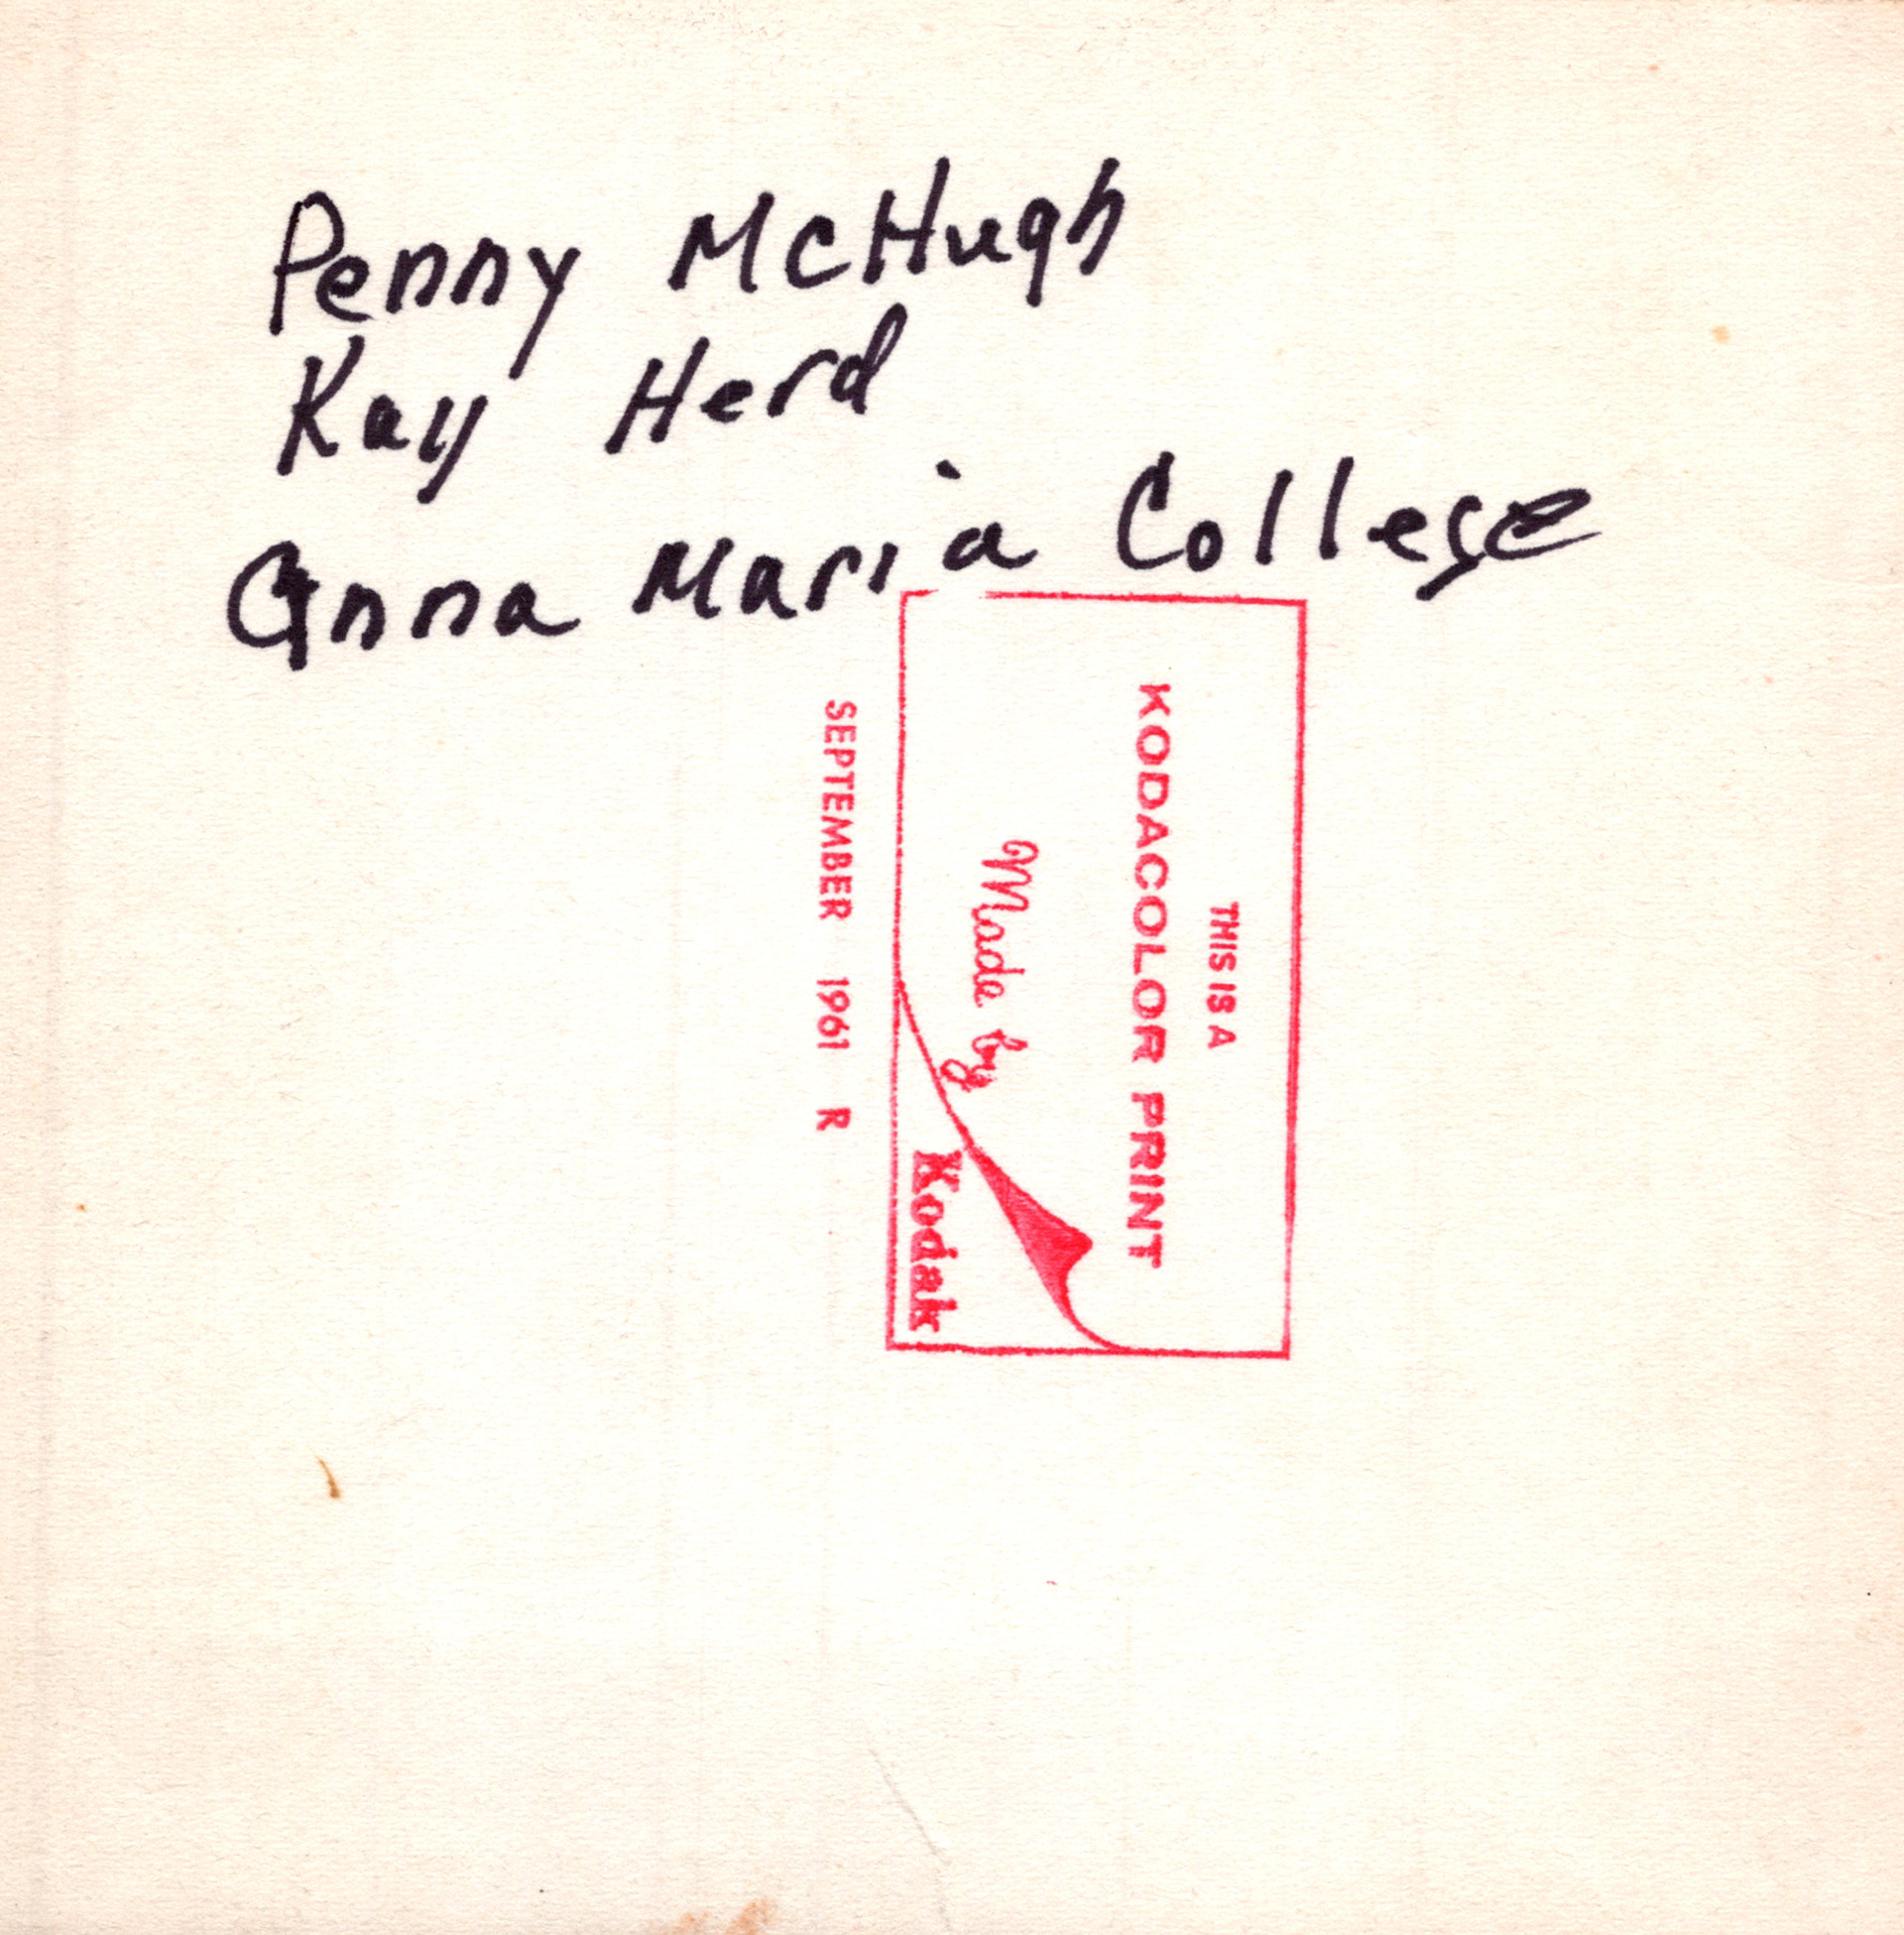 Penny McHugh
Kay Herd
Anna Maria College
THIS IS A
KODACOLOR PRINT
Made by
Kodak
SEPTEMBER 1961 R